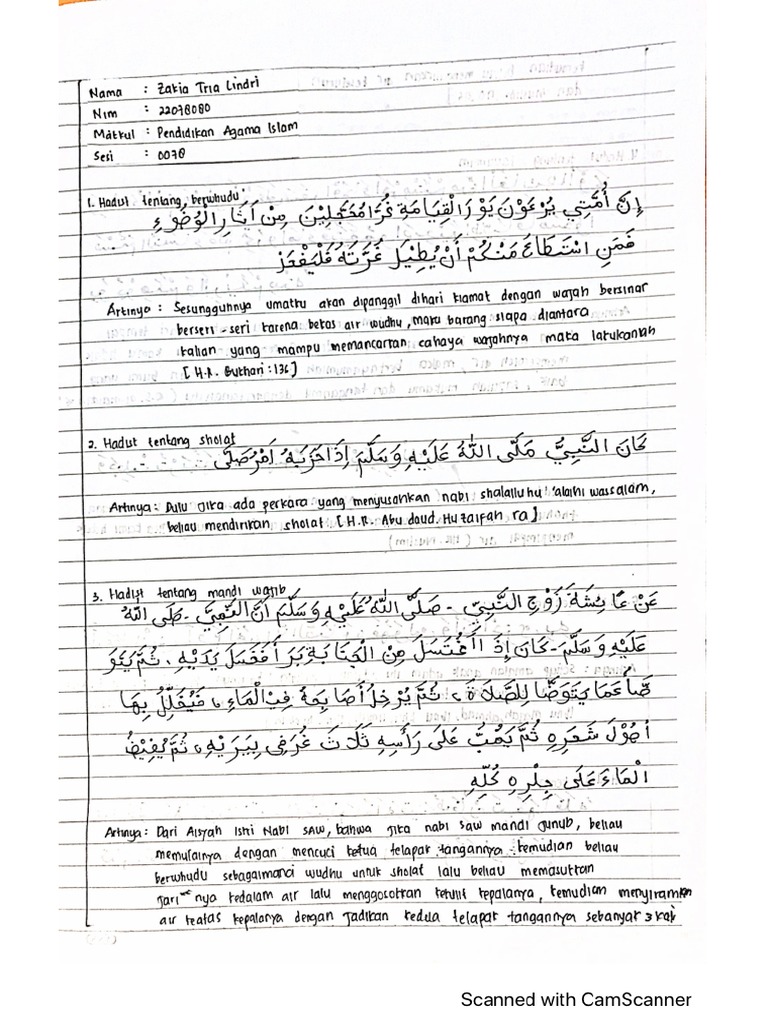 Nama : Zakia Tria Lindri
Nim : 22078080
Matkul : Pendidikan Agama Islam
Sesi : 0078
1. Hadut tentang berwhudu
إِنَّ أُمَّتِي يُرْعَوْنَ يَوْرَ الْقِيَامَةِ غُرًّا مُحَجَّلِيْنَ مِنْ آثَارِ الْوُضُوْءِ
فَمَنِ اسْتَطَاعَ مَنْكُمْ أَنْ يُطِيْلَ غُرَّتَهُ فَلْيَفْعَرْ
Artinya : Sesungguhnya umatku akan dipanggil dihari kiamat dengan wajah bersinar
berseri - seri karena bekas air wudhu, maka barang siapa diantara
kalian yang mampu memancarkan cahaya wajahnya maka lakukanlah
[H.R. Bukhari : 136]
2. Hadut tentang sholat
كَانَ النَّبِيُّ صَلَّى اللهُ عَلَيْهِ وَسَلَّمَ إِذَا حَزَبَهُ اَمْرٌ صَلَّى
Artinya : Dulu jika ada perkara yang menyusahkan nabi shalallu hu 'alaihi wassalam,
beliau mendirikan sholat [H.R. Abu daud. Huzaifah ra]
3. Hadist tentang mandi wajib
عَنْ عَائِشَةَ زَوْجِ النَّبِيِّ - صَلَّى اللهُ عَلَيْهِ وَسَلَّمَ أَنَّ النَّبِيَّ - صَلَّى اللهُ
عَلَيْهِ وَسَلَّمَ - كَانَ إِذَا اغْتَسَلَ مِنَ الْجَنَابَةِ بَرَأَ فَغَسَلَ يَدَيْهِ، ثُمَّ يَتَوَ
ضَّأُ عَمَا يَتَوَضَّأُ لِلصَّلَاةِ، ثُمَّ يُرْخِلُ أَصَابِعَهُ فِي الْمَاءِ، فَيُخَلِّلُ بِهَا
اُصُوْلَ شَعَرِهِ ثُمَّ يَصُبُّ عَلَى رَأْسِهِ ثَلَاثَ غُرَفٍ بِيَرَيْهِ، ثُمَّ يُفِيْضُ
الْمَاءَ عَلَى جِلْرِهِ كُلِّهِ
Artinya : Dari Aisyah Istri Nabi SAW, bahwa jika nabi saw mandi junub, beliau
memulainya dengan mencuci kedua telapak tangannya kemudian beliau
berwhudu sebagaimana wudhu untuk sholat lalu beliau memasukkan
Jari" nya kedalam air lalu menggosokkan kekulit kepalanya, kemudian menyiramkan
air keatas kepalanya dengan jadikan kedua telapak tangannya sebanyak 3 kali
Scanned with CamScanner